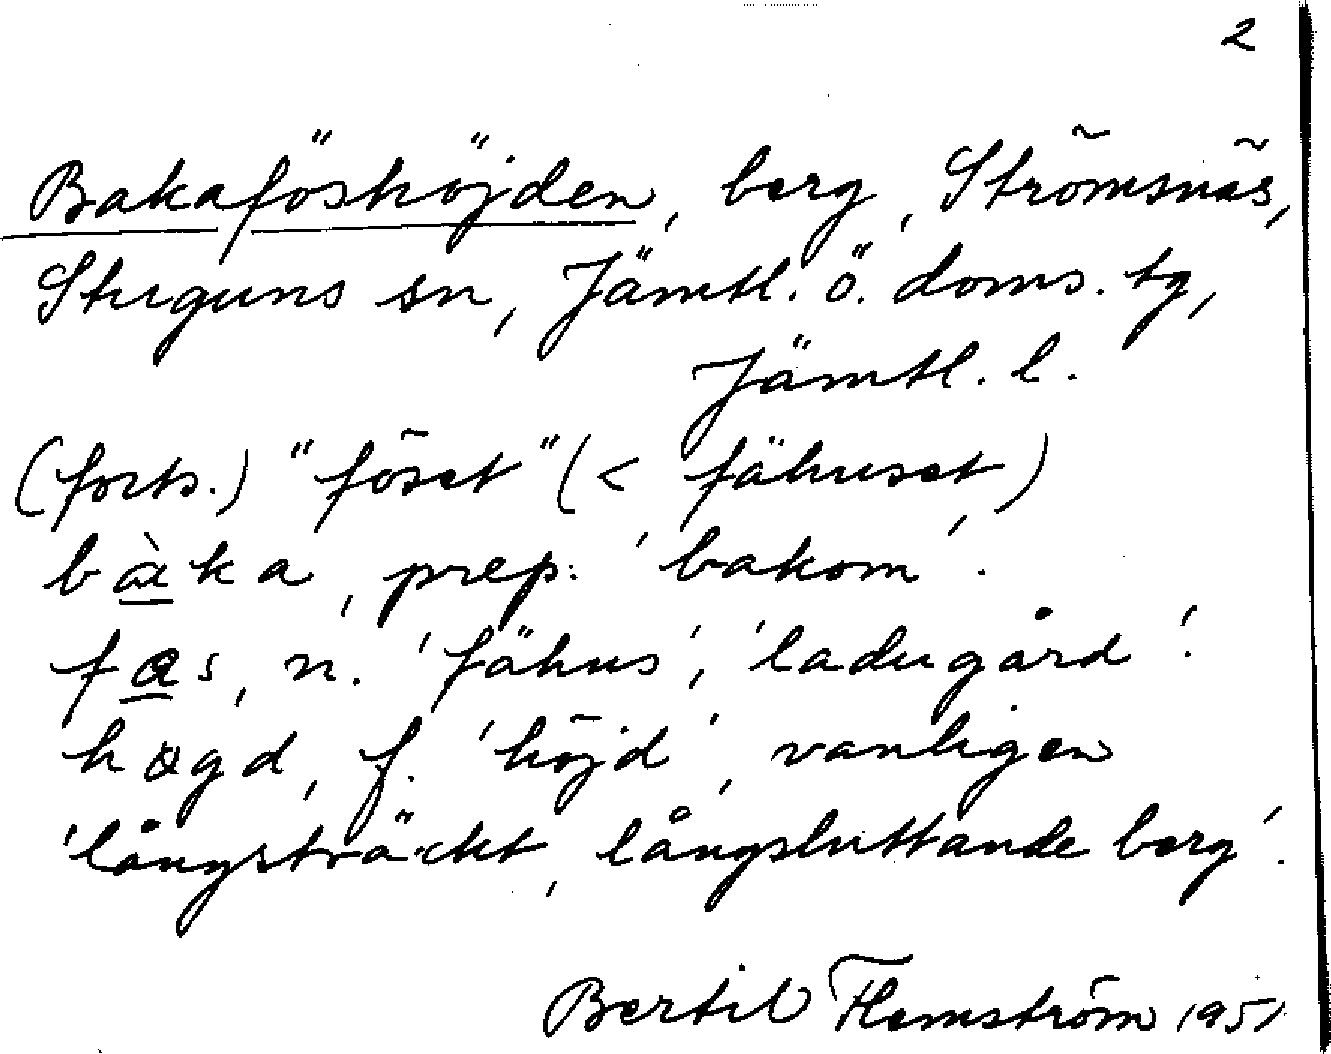 2
Bakaföshöjden, berg, Strömsnäs,
Stuguns sn, Jämtl. ö. doms. tg,
Jämtl. l.
(forts.) "föset" (< fähuset)
bàka, prep. 'bakom'.
fœs, n. 'fähus', 'ladugård'.
høgd, f. 'höjd', vanligen
'långsträckt, långsluttande berg'.
Bertil Flemström 1951